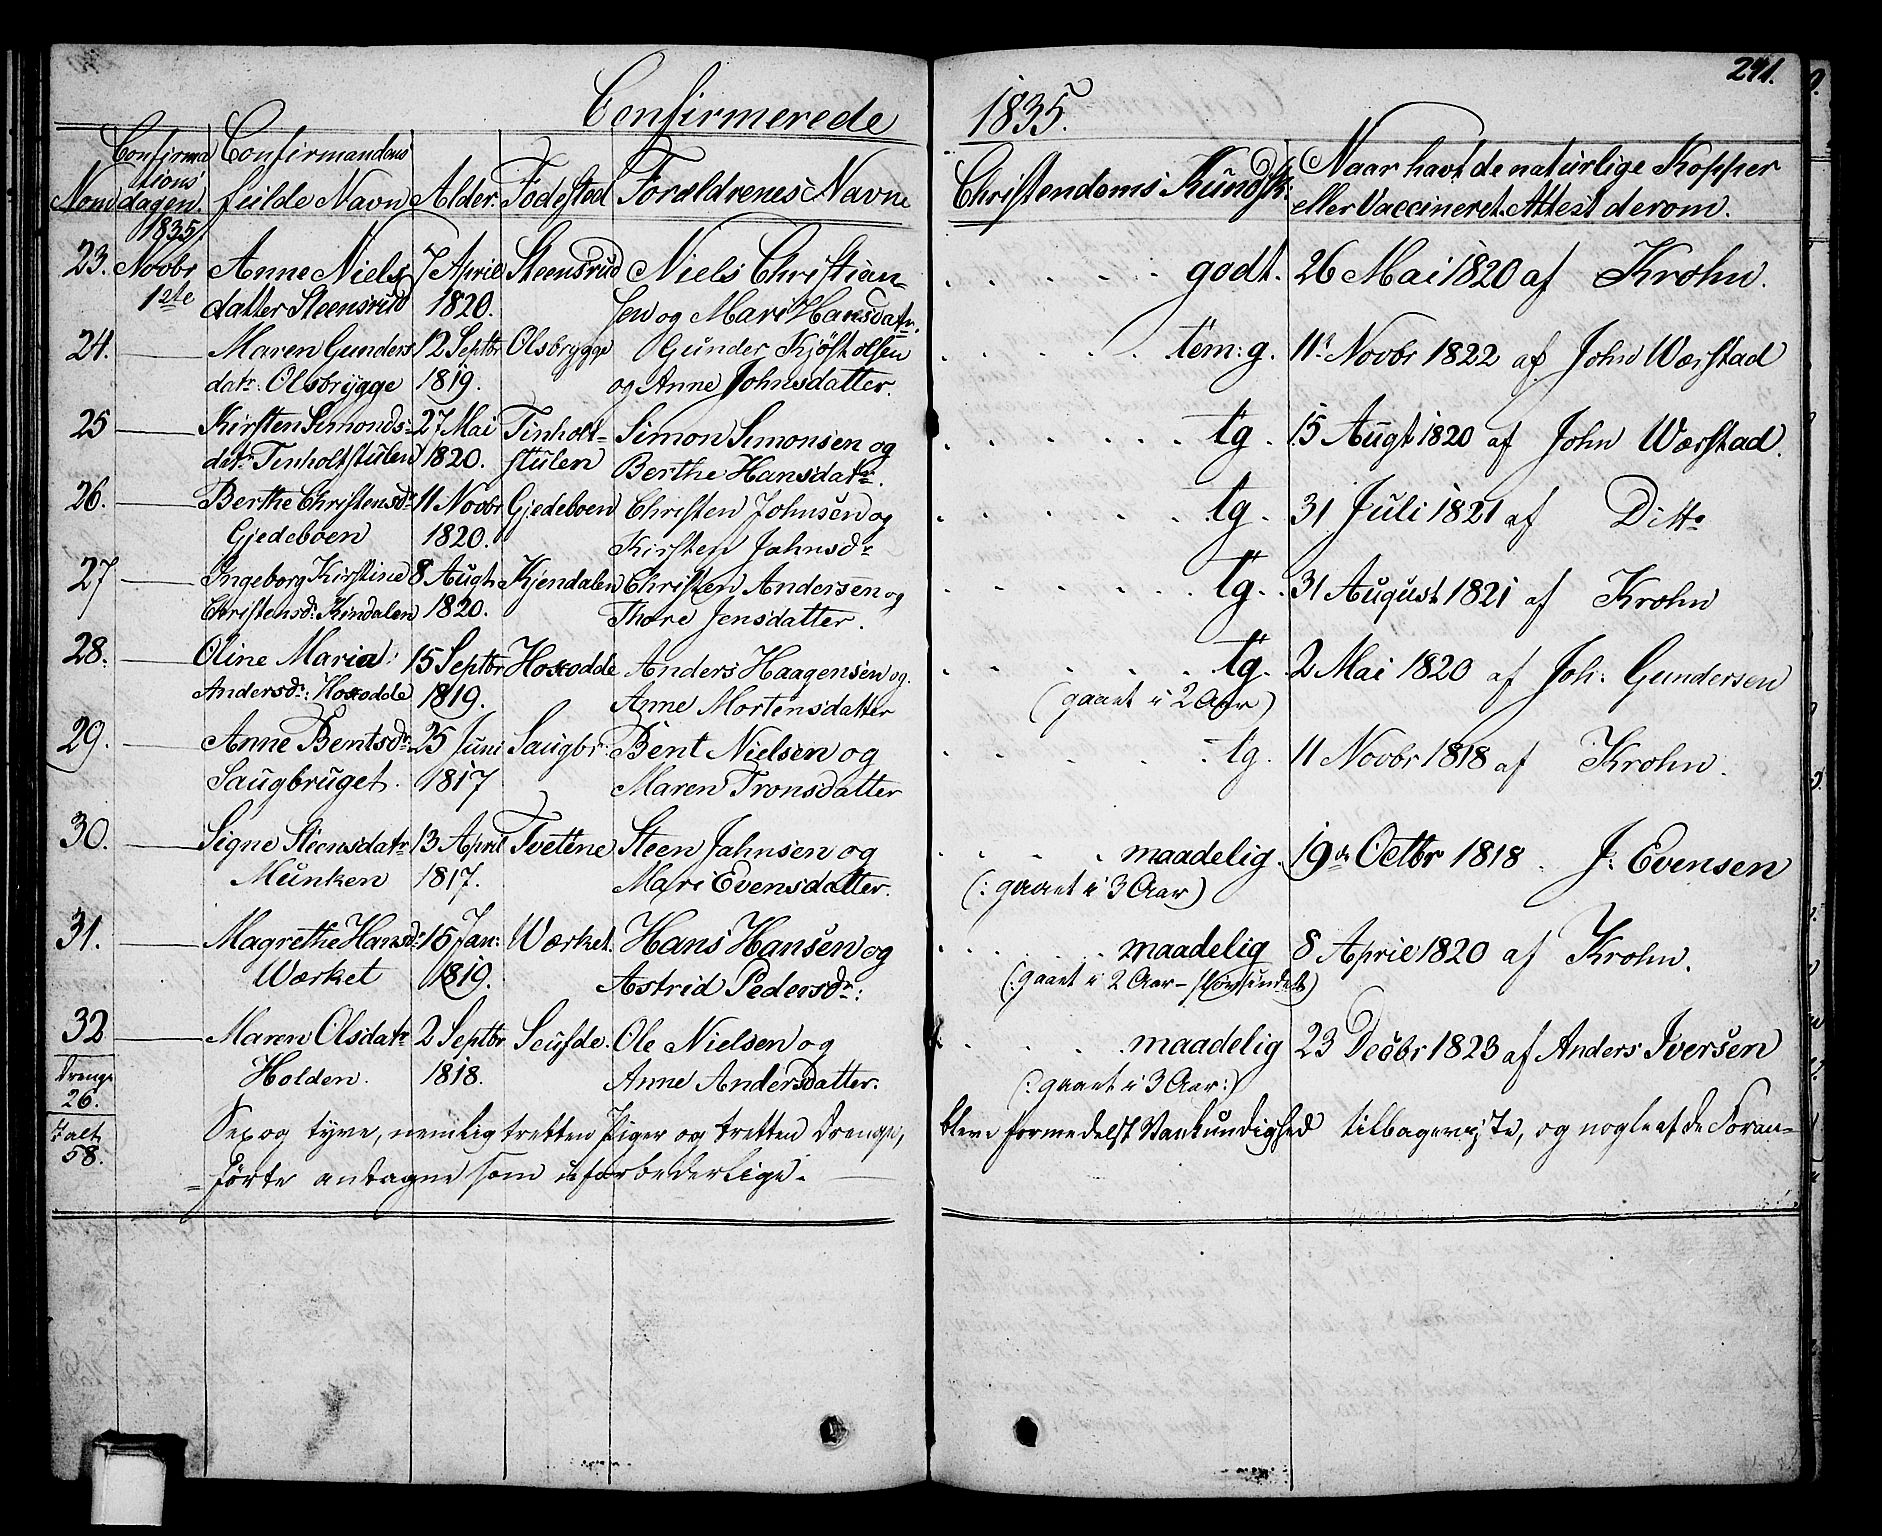 241.
Confirmerede 1835.
Confirma Confirmandens
tions
Nom dagen. fuilde Navn Alder. Fødested Forældrenes Navne Christendoms Kundsk: Naar havt de naturlige Kopper
eller Vaccineret. Attest derom.
1835
23. Novbr Anne Niels 7 April Steensrud Niels Christian- godt. 26 Mai 1820 af Krohn.
1ste datter Steensrud 1820. sen og Mari Hansdatr.
24. Maren Gunders 12 Septbr Olsbrygge Gunder Kjøstolsen tem: g. 11 Novbr 1822 af John Wærstad
datr: Olsbrygge 1819. og Anne Johnsdatter.
25 Kirsten Simonds- 27 Mai Tinholt- Simon Simonsen og tg. 15 Augst 1820 af John Wærstad.
datr Tinholtstulen 1820. stulen Berthe Hansdatr.
26. Berthe Christensdr 11 Novbr Gjedeboen Christen Johnsen og tg. 31 Juli 1821 af Ditto
Gjedeboen 1820. Kirsten Jahnsdr
27 Ingeborg Kirstine 8 Augt. Kjendalen Christen Andersen og tg. 31 August 1821 af Krohn
Christensdr: Kindalen 1820. Thore Jensdatter.
28. Oline Maria 15 Septbr Hoxodde Anders Haagensen og tg. 2 Mai 1820 af Joh: Gundersen
Andersdr: Hoxodde 1819. Anne Mortensdatter (gaaet i 2 Aar)
29. Anne Bentsdr 25 Juni Saugbr: Bent Nielsen og tg. 11 Novbr 1818 af Krohn.
Saugbruget. 1817 Maren Tronsdatter
30. Signe Steensdatr 13 April Tvetene Steen Jahnsen og maadelig. 19de Octbr 1818. J: Evensen
Munken 1817. Mari Evensdatter. (: gaaet i 3 Aar)
31. Magrethe Hansdr 15 Jan: Wærket. Hans Hansen og maadelig 8 April 1820 af Krohn.
Wærket 1819. Astrid Pedersdr: (: gaaet i 2 Aar-
32 Maren Olsdatr 2 Septbr Ole Nielsen og maadelig 23 Decbr 1823 af Anders Iversen
Holden. 1818. Anne Andersdatter. (: gaaet i 3 Aar:)
Drenge
26.
Ialt
58.
Sex og tyve, nemlig tretten Piger og tretten Drenge, bleve formedelst Vankundighed tilbageviste, og nogle af de Foran-
førte antagne som uforbederlige.